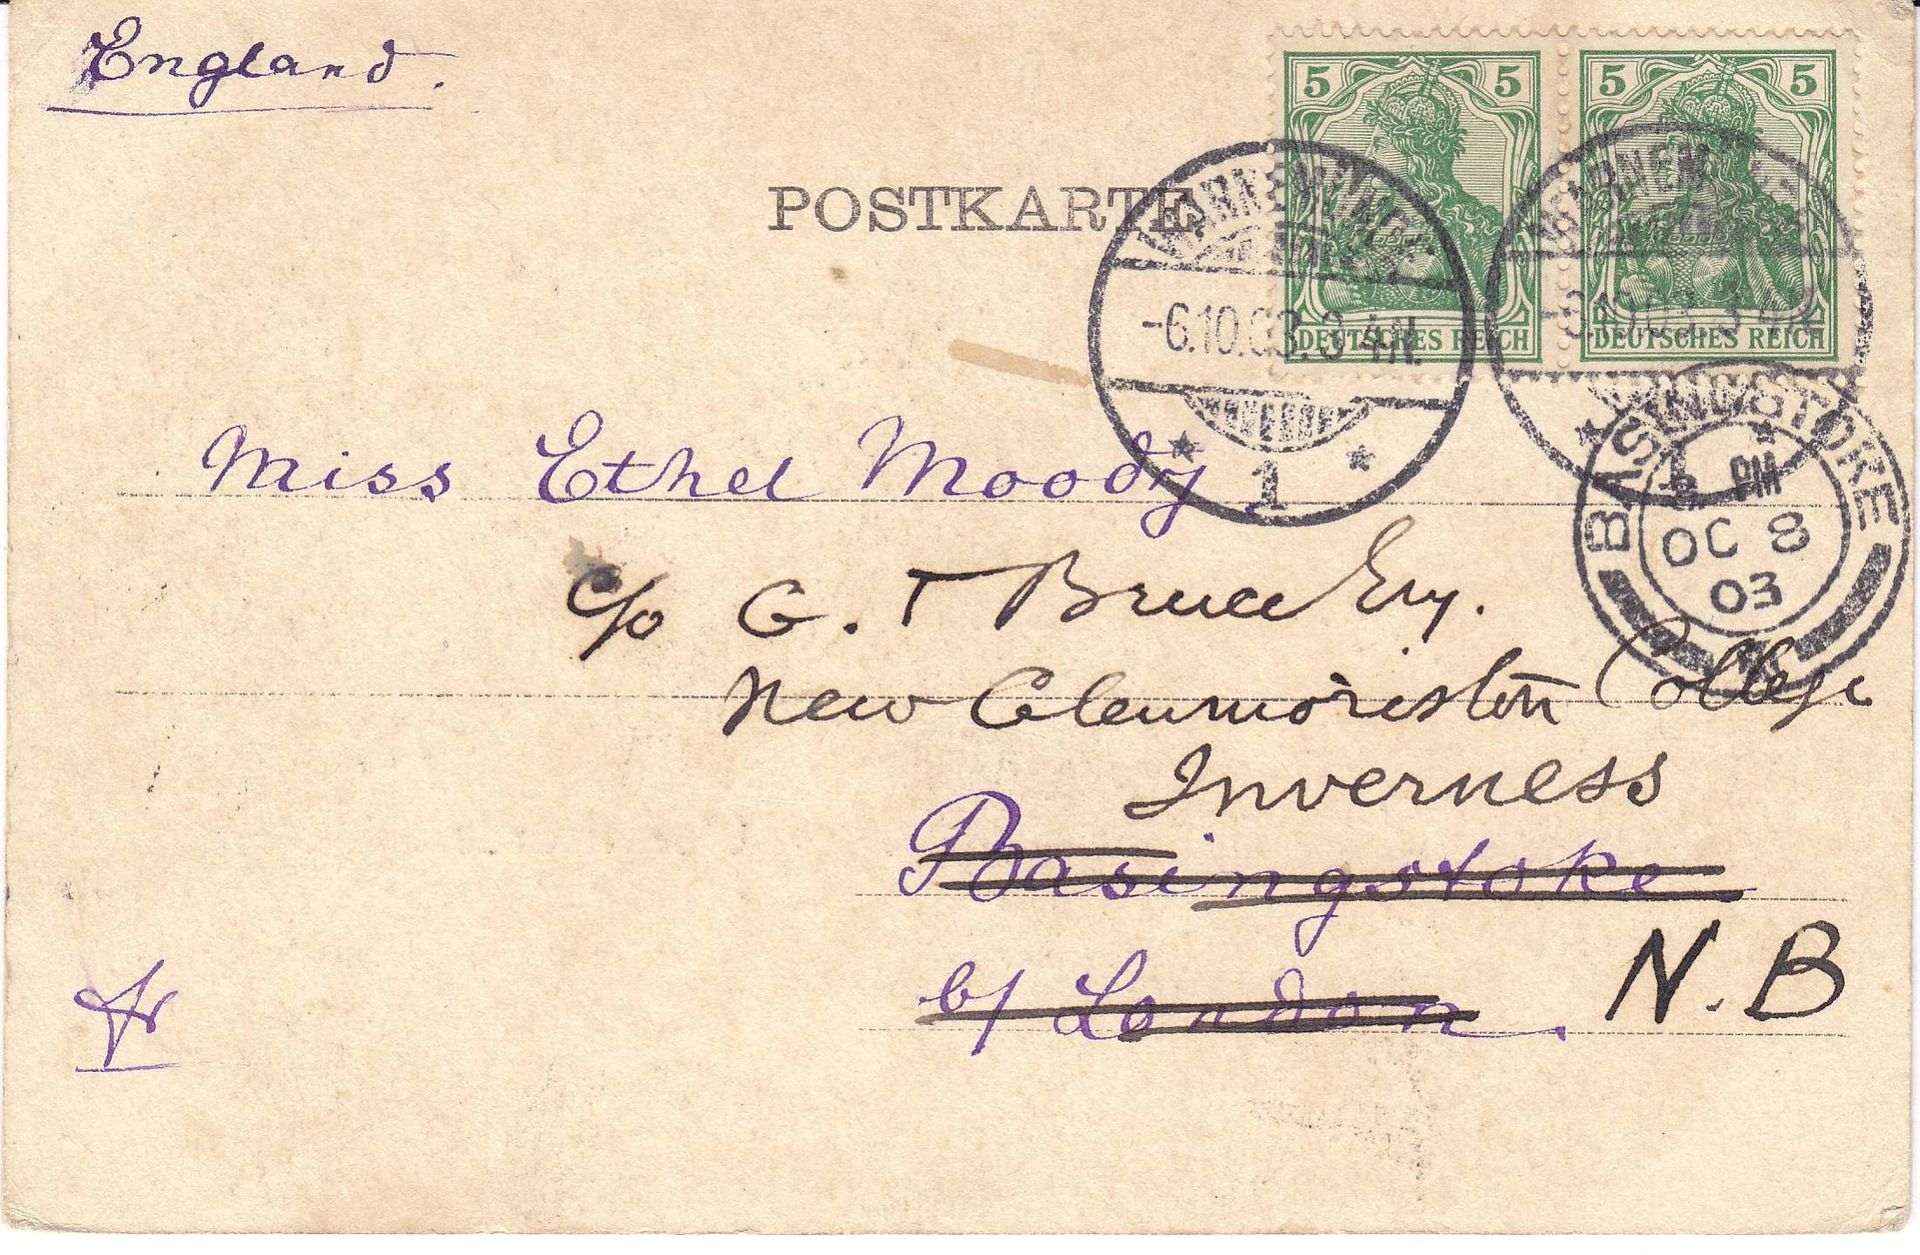 England.
5 5
5 5
POSTKARTE
WARNEMÜNDE
-6.10.03. 3-4N.
1
DEUTSCHES REICH
DEUTSCHES REICH
WARNEM
BASINGSTOKE
PM
OC 8
03
Miss Ethel Moody,
c/o G. T Bruce Esq.
New Glenmoriston College
Inverness
Basingstoke
b/ London.
N.B